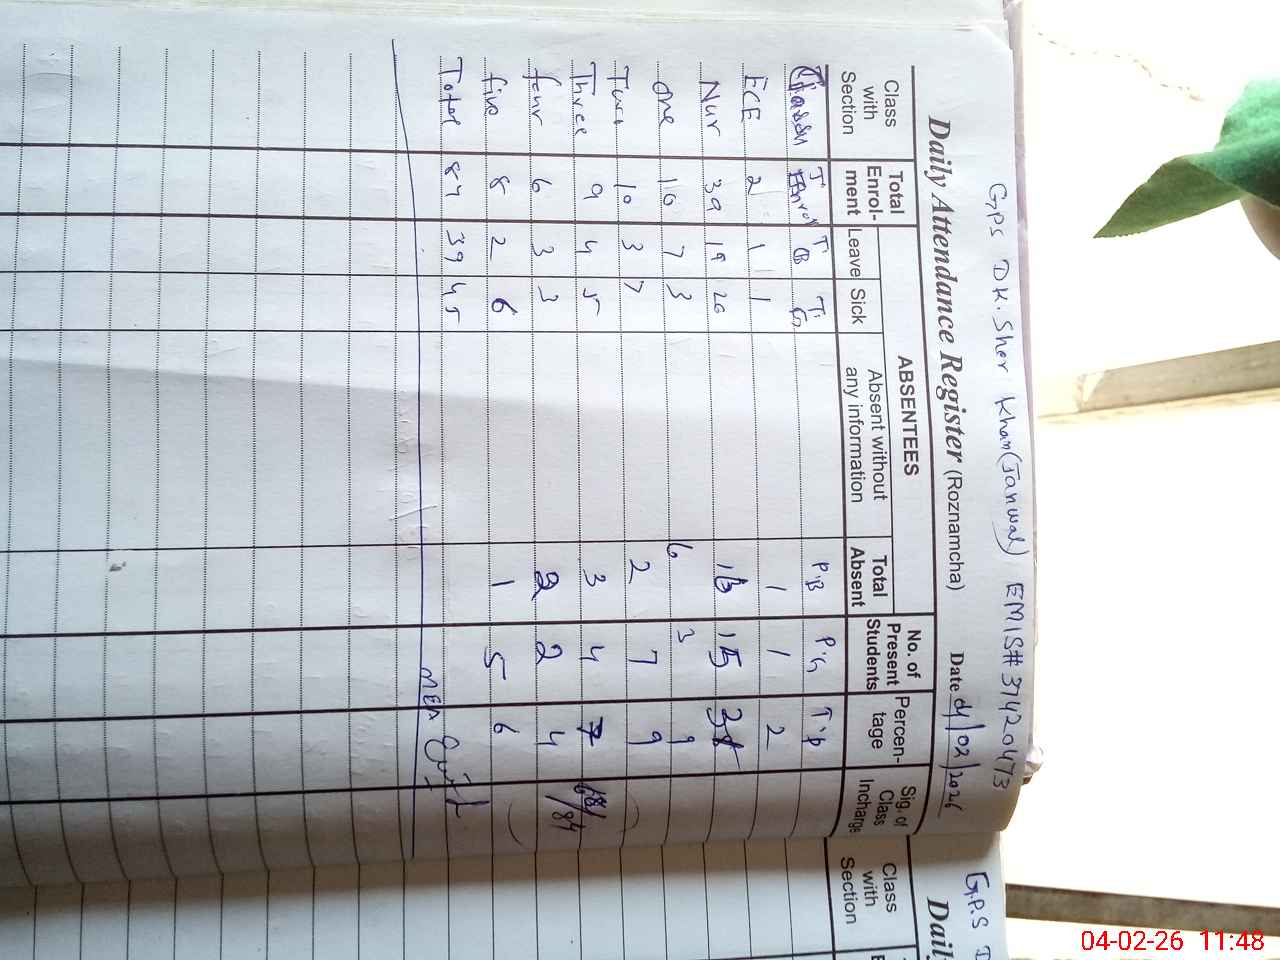 GPS DK. Sher Khan (Janwal) EMIS# 37420473
Daily Attendance Register (Roznamcha) Date 04/02/2026
Class with Section Total Enrol-ment ABSENTEES Leave Sick Absent without any information Total Absent No. of Present Students Percen-tage Sig. of Class Incharge
Classes T Enrol T B T. G P.B P.G T.P
ECE 2 1 1 1 1 2
Nur 39 19 20 16 15
one 10 7 3 6 3 9
Two 10 3 7 2 7 9
Three 9 4 5 3 4 7
four 6 3 3 2 2 4
five 8 2 6 1 5 6
Total 84 39 45
68/84
MEA
G.P.S D
Class with Section
04-02-26 11:48